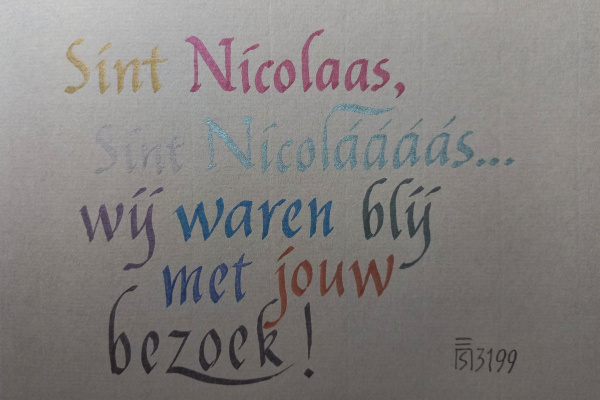 Sint Nicolaas,
Sint Nicoláááás...
wij waren blij
met jouw
bezoek!
3199